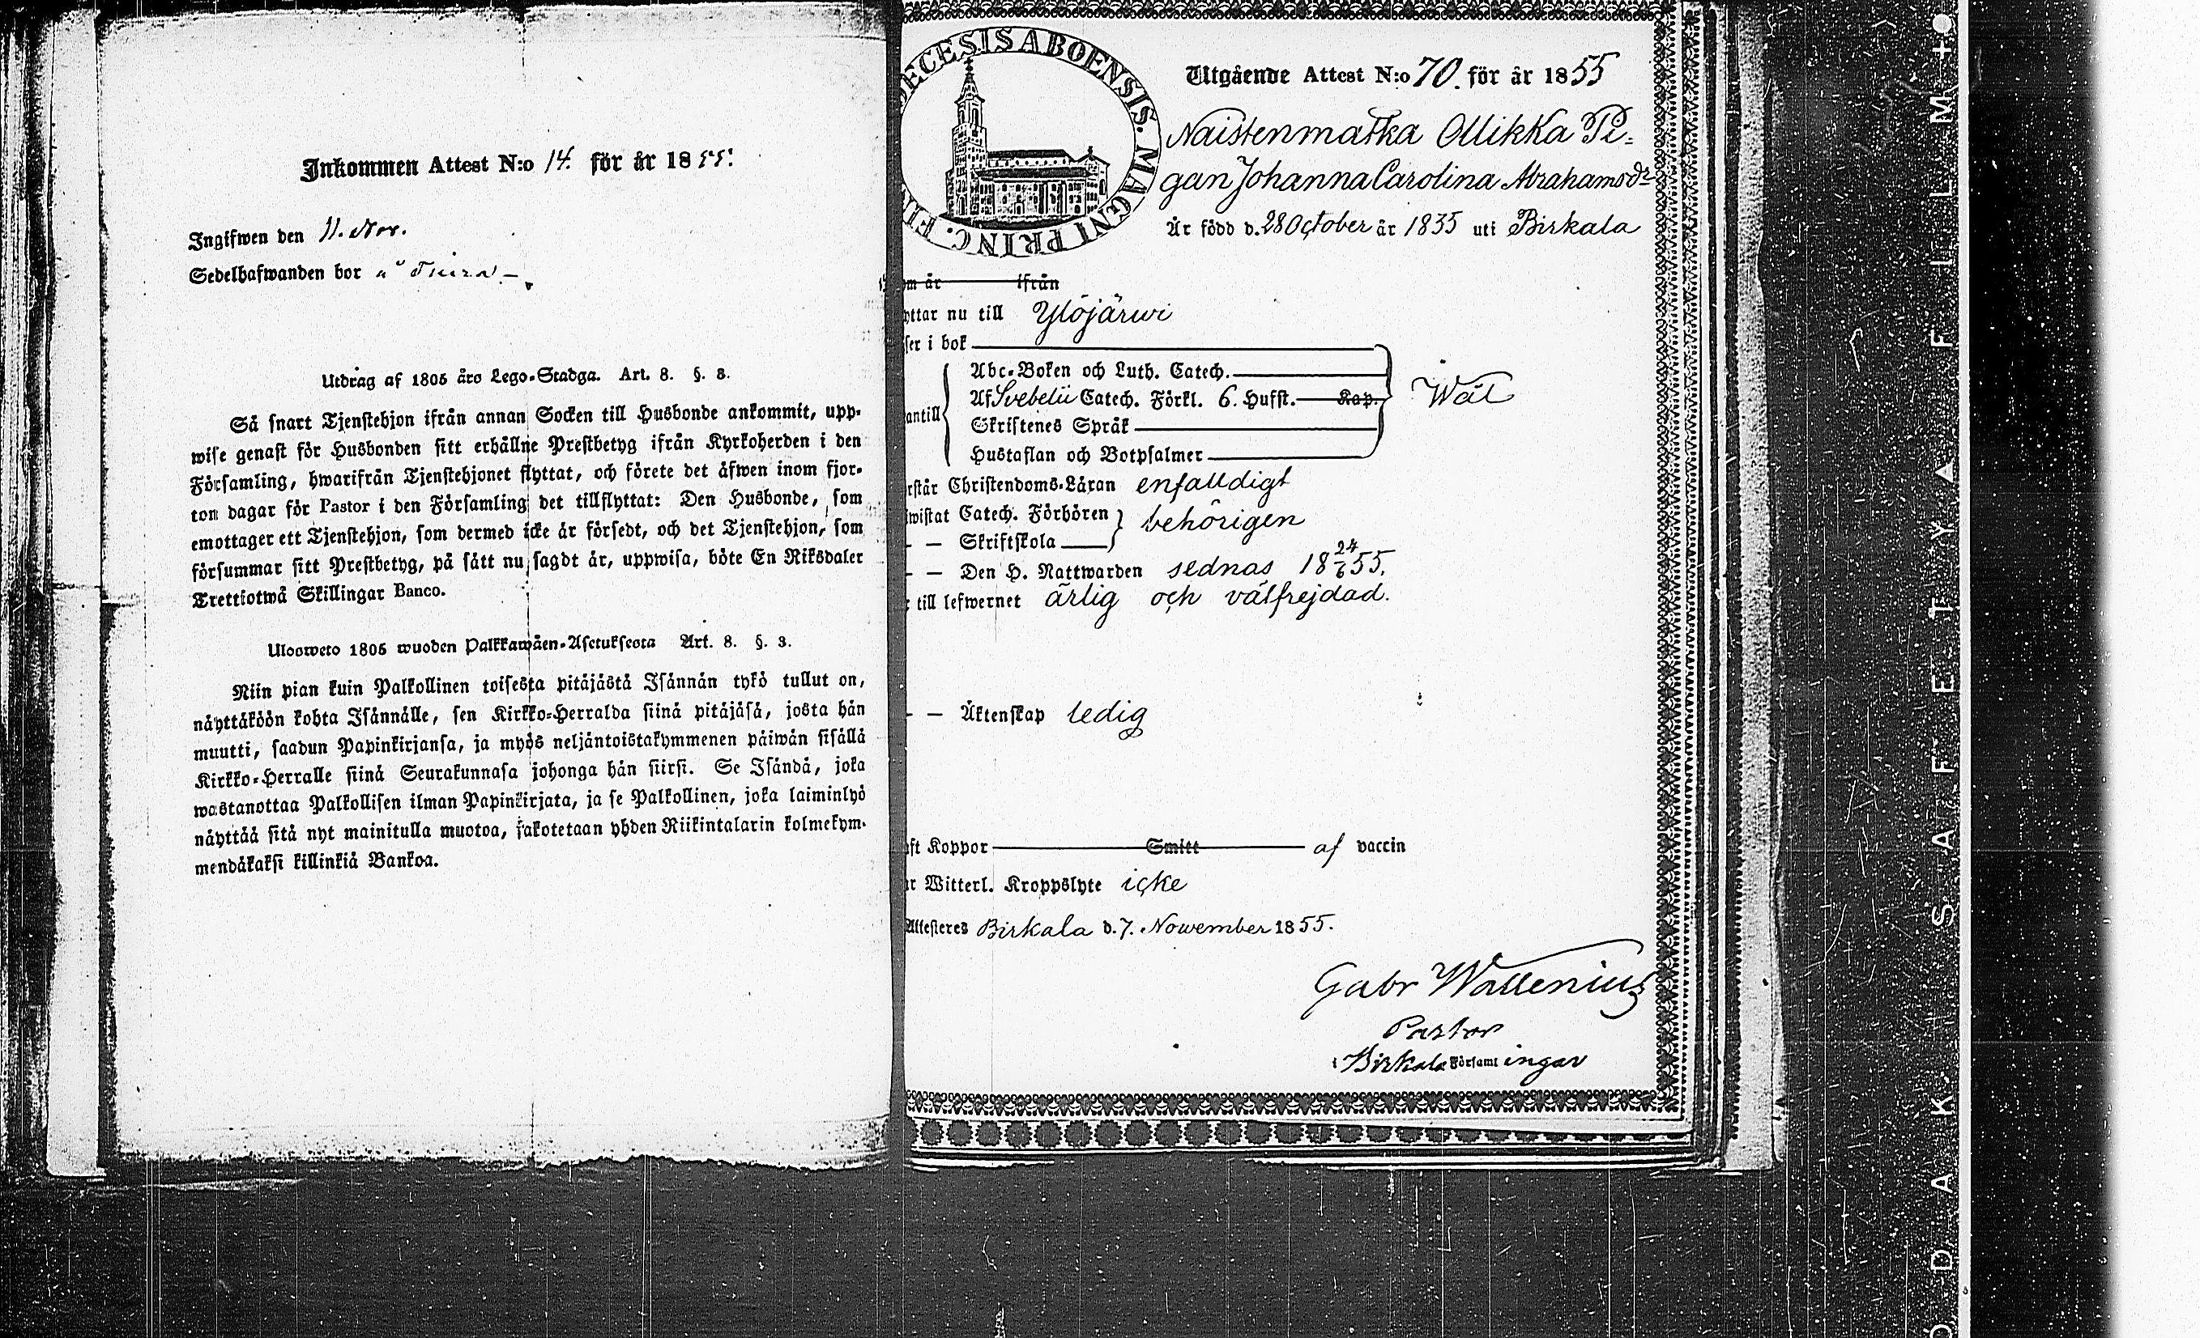 Inkommen Attest N:o 14. för år 1855.
Ingifwen den 11. Nov.
Sedelhafwanden bor å
Utdrag af 1805 års Lego-Stadga. Art. 8. §. 3.
Så snart Tjenstehjon ifrån annan Socken till Husbonde ankommit, upp-
wise genast för Husbonden sitt erhållne Prestbetyg ifrån Kyrkoherden i den
Församling, hwarifrån Tjenstehjonet flyttat, och förete det äfwen inom fjor-
ton dagar för Pastor i den Församling det tillflyttat: Den Husbonde, som
emottager ett Tjenstehjon, som dermed icke är försedt, och det Tjenstehjon, som
försummar sitt Prestbetyg, på sätt nu sagdt är, uppwisa, böte En Riksdaler
Trettiotwå Skillingar Banco.
Ulosweto 1805 wuoden Palkkawäen-Asetuksesta Art. 8. §. 3.
Niin pian kuin Palkollinen toisesta pitäjästä Isännän tykö tullut on,
näyttäköön kohta Isännälle, sen Kirkko-Herralda siinä pitäjäsä, josta hän
muutti, saadun Papinkirjansa, ja myös neljäntoistakymmenen päiwän sisällä
Kirkko-Herralle siinä Seurakunnasa johonga hän siirsi. Se Isändä, joka
wastanottaa Palkollisen ilman Papinkirjata, ja se Palkollinen, joka laiminlyö
näyttää sitä nyt mainitulla muotoa, sakotetaan yhden Riikintalarin kolmekym-
mendäkaksi killinkiä Bankoa.
DECESIS ABOENSIS. MAGNI PRINC. FIN
Utgående Attest N:o 70. för år 1855
Naistenmatka Ollikka Pi-
gan Johanna Carolina Abrahamsdr
Är född d. 28 October år 1835 uti Birkala
om år ifrån
yttar nu till Ylöjärwi
ser i bok
Abc-Boken och Luth. Catech.
Af Svebelii Catech. Förkl. 6. Hufst. Kap.
antill
Skriftenes Språk
Hustaflan och Botpsalmer
Wäl
rstår Christendoms-Läran enfalldigt
wistat Catech. Förhören
— — Skriftskola
behörigen
— — Den H. Nattwarden sednas 18 24/6 55.
till lefwernet ärlig och välfrejdad.
— — Äktenskap ledig
ft Koppor Smitt af vaccin
r Witterl. Kroppslyte icke
Attesteres Birkala d. 7. Nowember 1855.
Gabr Wallenius
Pastor
i Birkala Församl ingar
KODAK SAFETY ▲ FILM +●